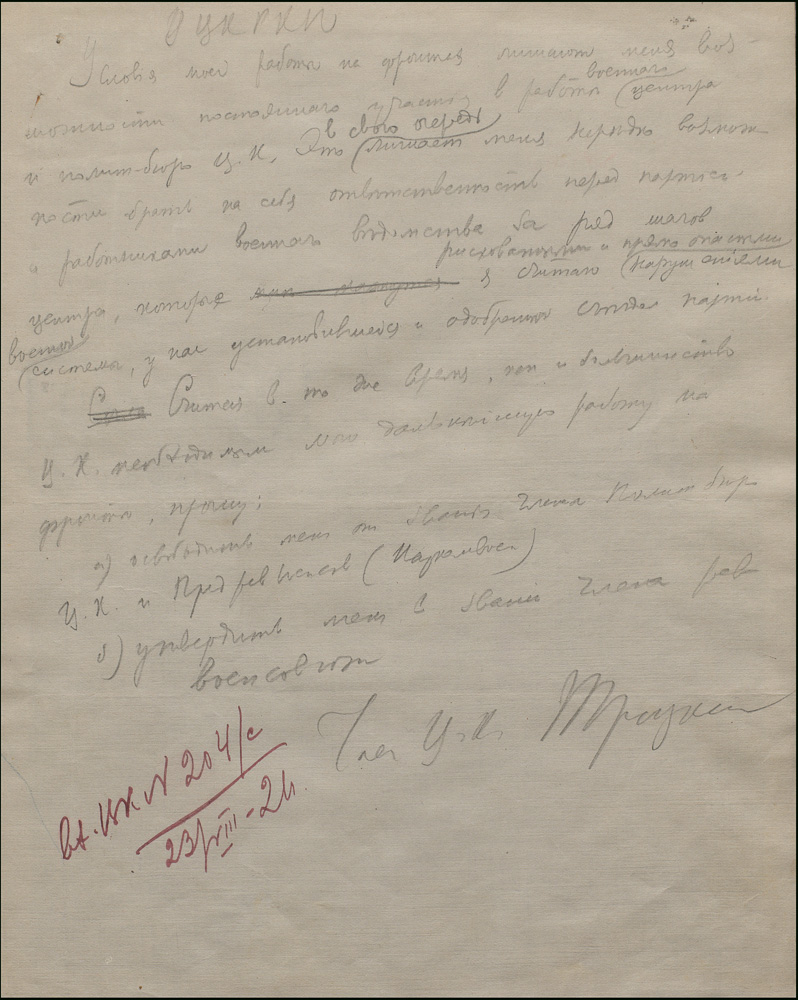 В ЦК РКП
Условия моей работы на фронтах лишают меня воз-
можности постоянного участия в работе военного центра
и полит-бюро Ц.К. Это в свою очередь лишает меня нередко возмож-
ности брать на себя ответственность перед партией
и работниками военного ведомства за ряд шагов
центра, которые я считаю рискованными и прямо опасными нарушениями
военной системы, у нас установившейся и одобренной съездом партии.
Считая в то же время, как и большинство
Ц.К. необходимым мою дальнейшую работу на
фронте, прошу:
а) освободить меня от звания члена Полит бюро
Ц.К. и Предреввоенсов (Наркомвоен)
б) утвердить меня в звании члена рев
военсовета
Член Ц.К. Троцкий
вх. ЦК N 204/с
23/VIII-24.